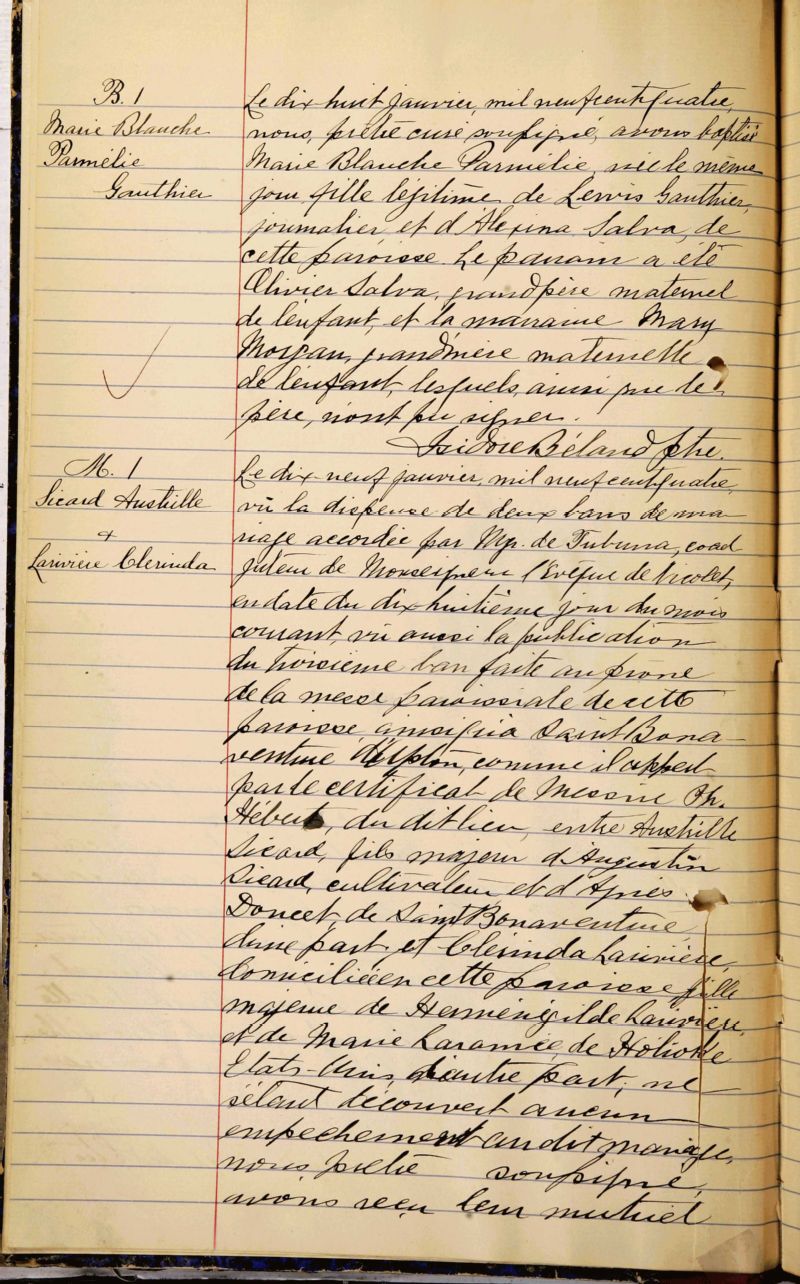 B. 1
Marie Blanche
Parmélie
Gauthier
Le dix-huit janvier, mil neuf cent quatre,
nous, prêtre curé soussigné, avons baptisé
Marie Blanche Parmélie, née le même
jour, fille légitime de Lewis Gauthier,
journalier, et d'Alexina Salva, de
cette paroisse. Le parrain a été
Olivier Salva, grand père maternel
de l'enfant, et la marraine Mary
Morgan, grand'mère maternelle
de l'enfant, lesquels, ainsi que le
père, n'ont pu signer.
Isidore Béland Ptre.
M. 1
Sicard Austrille
+
Larivière Clerinda
Le dix-neuf janvier, mil neuf cent quatre,
vû la dispense de deux bans de ma-
riage accordée par Mgr. de Tubuna, coad
juteur de Monseigneur l'Evêque de Nicolet,
en date du dix-huitième jour du mois
courant, vû aussi la publication
du troisième ban faite au prône
de la messe paroissiale de cette
paroisse, ainsi qu'à Saint Bona-
venture d'Upton, comme il appert
par le certificat de Messire Ph.
Hébert, du dit lieu, entre Austrille
Sicard, fils majeur d'Augustin
Sicard, cultivateur et d'Agnès
Doucet, de Saint Bonaventure,
d'une part et Clérinda Larivière,
domiciliée en cette paroisse fille
majeure de Herménégilde Larivière,
et de Marie Laramée, de Holioke
Etats-Unis, d'autre part; ne
s'étant découvert aucun
empêchement au dit mariage,
nous prêtre soussigné,
avons reçu leur mutuel